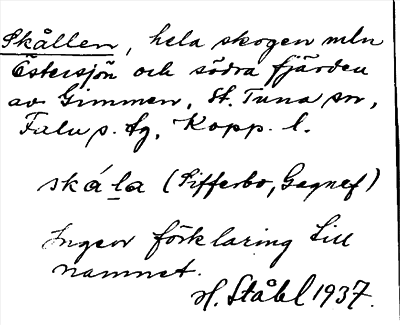 Skållen, hela skogen mln
Östersjön och södra fjärden
av Gimmen, St. Tuna sn,
Falu s. tg, Kopp. l.
skála (Sifferbo, Gagnef)
Ingen förklaring till
namnet.
H. Ståhl 1937.